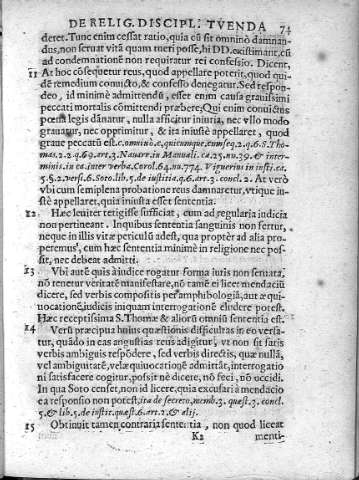 DE RELIG. DISCIPL. TVENDA 74
deret. Tunc enim cessat ratio, quia cũ sit omninò damnan-
dus, non seruat vitã quam tueri posse, hi DD. existimant, cũ
ad condemnationẽ non requiratur rei confessio. Dicent,
11 At hoc cõsequetur reus, quod appellare poterit, quod qui-
dẽ remedium conuicto, & confesso denegatur. Sed respon-
deo, id minimè admittendũ, esset enim causa grauissimi
peccati mortalis cõmittendi præbere; Qui enim conuictus
pœna legis dãnatur, nulla afficitur iniuria, nec vllo modo
grauatur, nec opprimitur, & ita iniustè appellaret, quod
graue peccatũ est. c. omninò. c. quicunque. cum seq. 2. q. 6. S. Tho
mas. 2. 2. q. 69. art. 3. Nauarr. in Manuali. ca. 25. nu. 39. & in ter-
minis. in ca. inter verba. Corol. 64. nu. 774. Viguerius in insti. ca.
5. §. 2. vers. 6. Soto lib. 5. de iustitia. q. 6. art. 3. concl. 2. At verò
vbi cum semiplena probatione reus damnaretur, vtique iu-
stè appellaret, quia iniusta esset sententia.
12 Hæc leuiter tetigisse suffficiat, cum ad regularia iudicia
non pertineant. In quibus sententia sanguinis non fertur,
neque in illis vitæ periculũ adest, qua propter ad alia pro-
peremus, cum hæc sententia minimè in religione nec pos-
sit, nec debeat admitti.
13 Vbi autẽ quis à iudice rogatur forma iuris non seruata,
nõ tenetur veritatẽ manifestare, nõ tamẽ ei licet mendaciũ
dicere, sed verbis compositis per amphibologiã, aut æqui-
uocationẽ, iudicis iniquam interrogationẽ eludere potest.
Hæc receptissima S. Thomæ & aliorũ omniũ sententia est.
14 Verũ præcipua huius quæstionis difficultas in eo versa-
tur, quãdo in eas angustias reus adigitur, vt non sit satis
verbis ambiguis respõdere, sed verbis directis, quæ nullã,
vel ambiguitatẽ, vel æquiuocationẽ admittãt, interrogatio-
ni satisfacere cogitur, possit nè dicere, nõ feci, nõ occidi.
In qua Soto censet, non id licere, quia excusari à mendacio
ea responsio non potest, ita de secreto, memb. 3. quæst. 3. concl.
5. & lib. 5. de iustit. quæst. 6. art. 2. & alij.
15 Obtinuit tamen contraria sententia, non quod liceat
K2 menti-